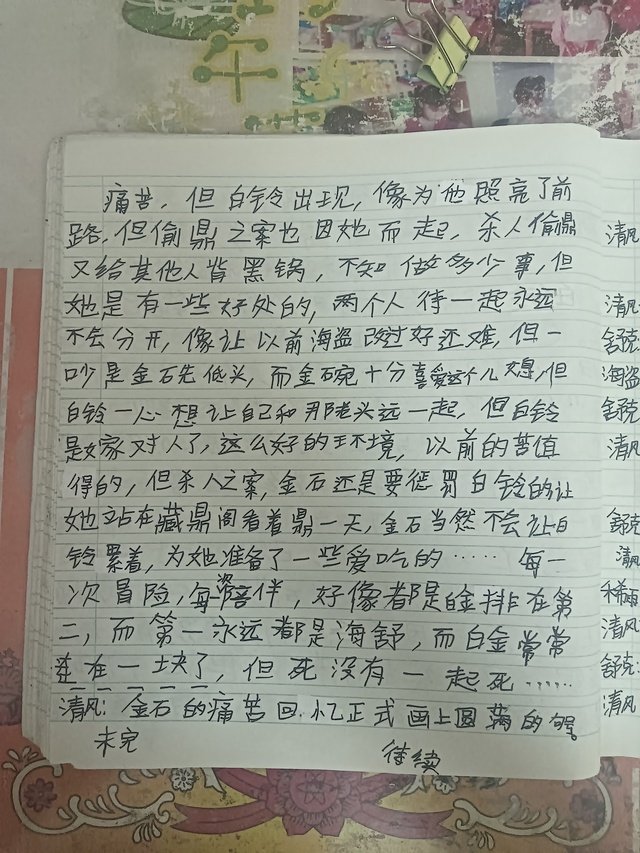 痛苦，但白铃出现，像为他照亮了前
路，但偷鼎之案也因她而起，杀人偷鼎
又给其他人背黑锅，不知做多少事，但
她是有一些好处的，两个人待一起永远
不会分开，像让以前海盗改过好还难，但一
吵是金石先低头，而金石碗十分喜爱这个儿媳，但
白铃一心想让自己和那老头远一起，但白铃
是嫁对人了，这么好的环境，以前的苦值
得的，但杀人之案，金石还是要惩罚白铃的让
她站在藏鼎阁看着鼎一天，金石当然不会让白
铃累着，为她准备了一些爱吃的……每一
次冒险，每次陪伴，好像都是白金排在第
二，而第一永远都是海舒，而白金常常
在一块了，但死没有一起死……
清风：金石的痛苦回忆正式画上圆满的句号
未完
待续
清风
清风：
舒克：
海盗
舒克
清风
舒克
清风
稀
清风
舒克：
清风